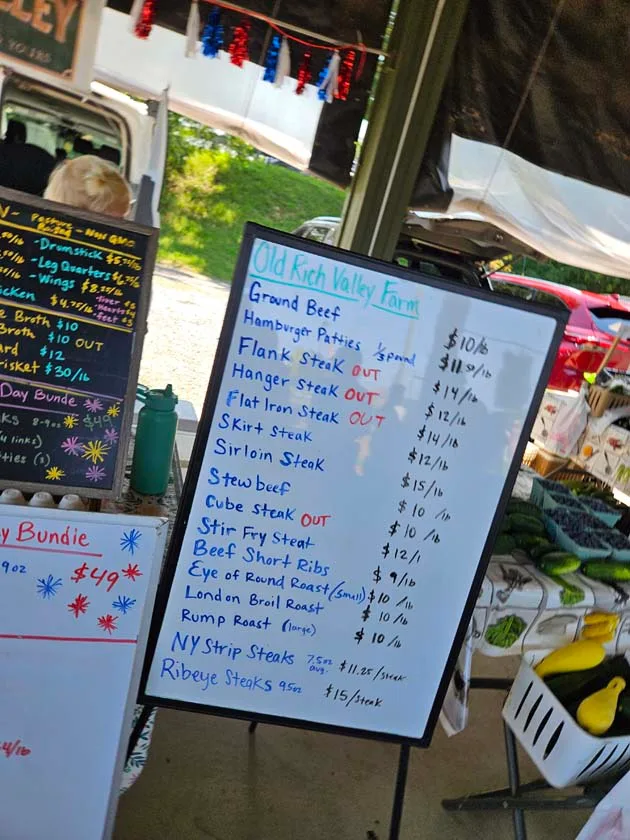 LLEY
Old Rich Valley Farm
Ground Beef $10/lb
Hamburger Patties 1/3 pound $11.50/lb
Flank Steak OUT $14/lb
Hanger Steak OUT $12/lb
Flat Iron Steak OUT $14/lb
Skirt Steak $12/lb
Sirloin Steak $15/lb
Stew beef $10 /lb
Cube Steak OUT $10 /lb
Stir Fry Steat $12/l
Beef Short Ribs $9/lb
Eye of Round Roast (small) $10 /lb
London Broil Roast $10 /lb
Rump Roast (large) $10 /lb
NY Strip Steaks 7.5oz avg. $11.25/steak
Ribeye Steaks 9.5oz $15/steak
Pasture Raised - Non GMO
- Drumstick
- Leg Quarters
- Wings
icken
liver
hearts
feet
Broth $10
Broth $10 OUT
ard $12
risket $30/lb
Day Bundle
ks 8-9oz $49
links)
ties (3)
y Bundle
9oz $49
4/lb